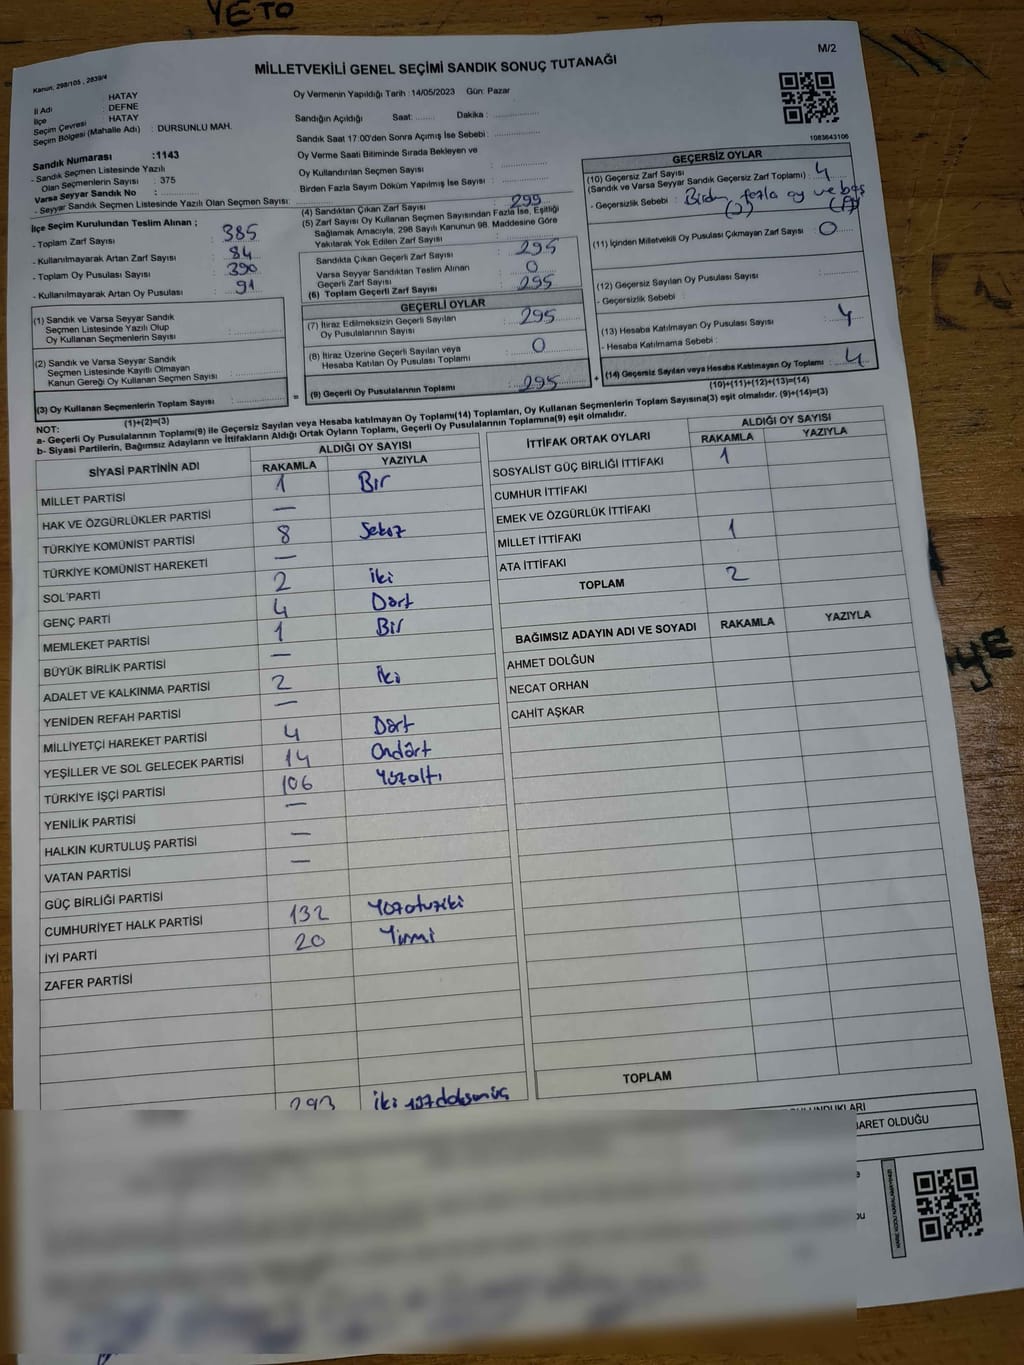 YETO
M/2
Kanun, 298/105 , 2839/4
MİLLETVEKİLİ GENEL SEÇİMİ SANDIK SONUÇ TUTANAĞI
İl Adı : HATAY
İlçe : DEFNE
Seçim Çevresi : HATAY
Seçim Bölgesi (Mahalle Adı) : DURSUNLU MAH.
Oy Vermenin Yapıldığı Tarih : 14/05/2023 Gün: Pazar
Sandığın Açıldığı Saat: Dakika :
Sandık Saat 17:00'den Sonra Açımış İse Sebebi :
Oy Verme Saati Bitiminde Sırada Bekleyen ve
Oy Kullandırılan Seçmen Sayısı :
Birden Fazla Sayım Döküm Yapılmış İse Sayısı :
1083643106
Sandık Numarası :1143
- Sandık Seçmen Listesinde Yazılı
Olan Seçmenlerin Sayısı : 375
Varsa Seyyar Sandık No :
- Seyyar Sandık Seçmen Listesinde Yazılı Olan Seçmen Sayısı:
İlçe Seçim Kurulundan Teslim Alınan ;
- Toplam Zarf Sayısı : 385
- Kullanılmayarak Artan Zarf Sayısı : 84
- Toplam Oy Pusulası Sayısı : 390
- Kullanılmayarak Artan Oy Pusulası : 91
(1) Sandık ve Varsa Seyyar Sandık
Seçmen Listesinde Yazılı Olup
Oy Kullanan Seçmenlerin Sayısı :
(2) Varsa Sandık ve Seyyar Sandık
Seçmen Listesinde Kayıtlı Olmayan
Kanun Gereği Oy Kullanan Seçmen Sayısı :
(3) Oy Kullanan Seçmenlerin Toplam Sayısı :
(1)+(2)=(3)
(4) Sandıktan Çıkan Zarf Sayısı : 299
(5) Zarf Sayısı Oy Kullanan Seçmen Sayısından Fazla İse, Eşitliği
Sağlamak Amacıyla, 298 Sayılı Kanunun 98. Maddesine Göre
Yakılarak Yok Edilen Zarf Sayısı :
Sandıkta Çıkan Geçerli Zarf Sayısı : 295
Varsa Seyyar Sandıktan Teslim Alınan
Geçerli Zarf Sayısı : 0
(6) Toplam Geçerli Zarf Sayısı : 295
GEÇERLİ OYLAR
(7) İtiraz Edilmeksizin Geçerli Sayılan
Oy Pusulalarının Sayısı : 295
(8) İtiraz Üzerine Geçerli Sayılan veya
Hesaba Katılan Oy Pusulası Toplamı : 0
= (9) Geçerli Oy Pusulalarının Toplamı : 295
GEÇERSİZ OYLAR
(10) Geçersiz Zarf Sayısı : 4
(Sandık ve Varsa Seyyar Sandık Geçersiz Zarf Toplamı) :
- Geçersizlik Sebebi : Birden fazla oy ve boş
(2)
(11) İçinden Milletvekili Oy Pusulası Çıkmayan Zarf Sayısı : 0
(12) Geçersiz Sayılan Oy Pusulası Sayısı :
- Geçersizlik Sebebi :
(13) Hesaba Katılmayan Oy Pusulası Sayısı : 4
- Hesaba Katılmama Sebebi :
+ (14) Geçersiz Sayılan veya Hesaba Katılmayan Oy Toplamı : 4
(10)+(11)+(12)+(13)=(14)
NOT:
a- Geçerli Oy Pusulalarının Toplamı(9) ile Geçersiz Sayılan veya Hesaba katılmayan Oy Toplamı(14) Toplamları, Oy Kullanan Seçmenlerin Toplam Sayısına(3) eşit olmalıdır. (9)+(14)=(3)
b- Siyasi Partilerin, Bağımsız Adayların ve İttifakların Aldığı Ortak Oyların Toplamı, Geçerli Oy Pusulalarının Toplamına(9) eşit olmalıdır.
SİYASİ PARTİNİN ADI ALDIĞI OY SAYISI
RAKAMLA YAZIYLA
MİLLET PARTİSİ 1 Bir
HAK VE ÖZGÜRLÜKLER PARTİSİ —
TÜRKİYE KOMÜNİST PARTİSİ 8 Sekiz
TÜRKİYE KOMÜNİST HAREKETİ —
SOL PARTİ 2 iki
GENÇ PARTİ 4 Dört
MEMLEKET PARTİSİ 1 Bir
BÜYÜK BİRLİK PARTİSİ —
ADALET VE KALKINMA PARTİSİ 2 iki
YENİDEN REFAH PARTİSİ —
MİLLİYETÇİ HAREKET PARTİSİ 4 Dört
YEŞİLLER VE SOL GELECEK PARTİSİ 14 Ondört
TÜRKİYE İŞÇİ PARTİSİ 106 Yüzaltı
YENİLİK PARTİSİ —
HALKIN KURTULUŞ PARTİSİ —
VATAN PARTİSİ —
GÜÇ BİRLİĞİ PARTİSİ
CUMHURİYET HALK PARTİSİ 132 Yüzotuziki
İYİ PARTİ 20 Yirmi
ZAFER PARTİSİ
293 iki yüzdoksanüç
İTTİFAK ORTAK OYLARI ALDIĞI OY SAYISI
RAKAMLA YAZIYLA
SOSYALİST GÜÇ BİRLİĞİ İTTİFAKI 1
CUMHUR İTTİFAKI
EMEK VE ÖZGÜRLÜK İTTİFAKI
MİLLET İTTİFAKI 1
ATA İTTİFAKI
TOPLAM 2
BAĞIMSIZ ADAYIN ADI VE SOYADI RAKAMLA YAZIYLA
AHMET DOLĞUN
NECAT ORHAN
CAHİT AŞKAR
TOPLAM